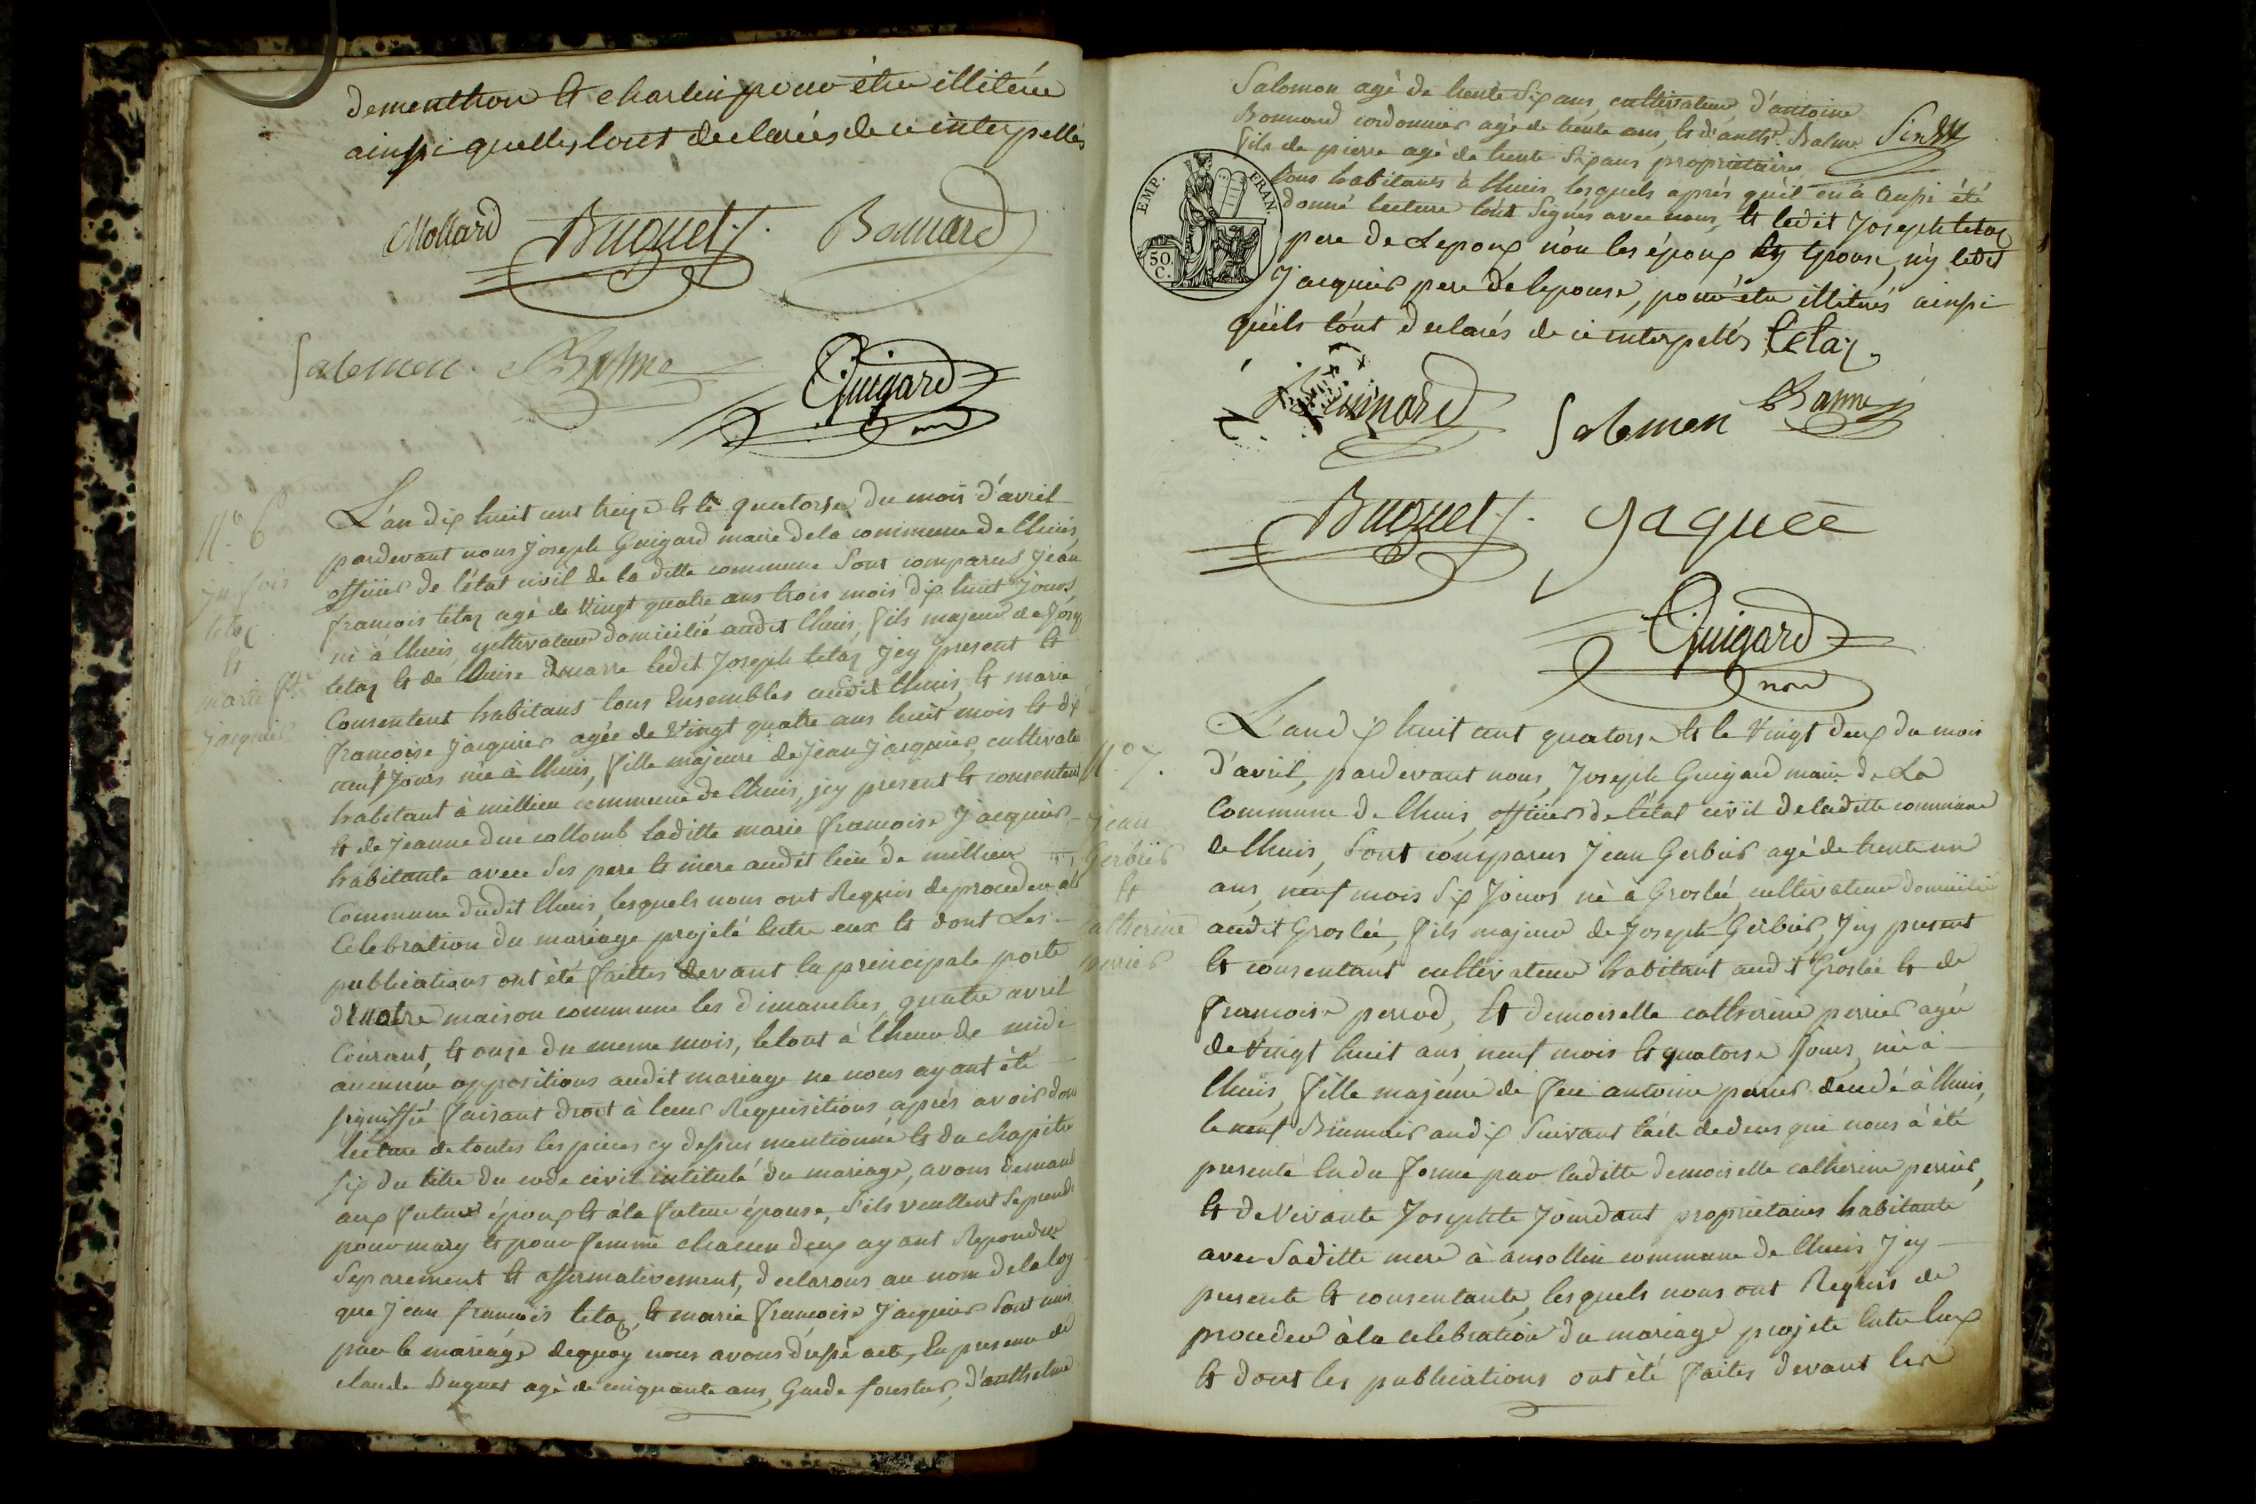 dementhon et charlin pour être illitérée
ainsi quelles lont declarées de ce interpellés
Mollard Buquet Bonnard
Salomon Balme Guigard
mre
N.o 6
jn fois
tetaz
et
marie fse
jacquier
L'an dix huit cent treize et le quatorze du mois d'avril
pardevant nous Joseph Guigard maire de la commune de lhuis,
officier de l'état civil de la ditte commune Sont comparus Jean
francois tetaz agé de Vingt quatre ans trois mois dix huit Jours
né à lhuis, cultivateur domicilié audit lhuis, fils majeur de Josep
tetaz et de Louise ledit Joseph tetaz jcy present et
Consentent habitans tous Ensembles audit lhuis, et marie
francoise Jacquier agée de Vingt quatre ans huit mois et dix
neuf Jours née à lhuis, fille majeure de Jean Jacquier, cultivateu
habitant à millieu commune de lhuis, jcy present et consentent
et de Jeanne duc collomb laditte marie francoise Jacquier
habitante avec Ses pere et mere audit lieu de millieu
Commune dudit lhuis, lesquels nous ont Requis de proceder ala
Celebration du mariage projeté Entre eux et dont Les
publications ont été faittes devant la principale porte
de notre maison commune les dimanches, quatre avril
Courant, et onze du meme mois, le tout à lheure de midi
aucunne oppositions audit mariage ne nous ayant été
signiffié faisant droit à leurs Requisitions aprés avoir don
lecture de toutes les pieces cy dessus mentionnée et du chapitre
six du titre du code civil intitulé du mariage, avons demandé
aux futur époux et à la future épouse, s'ils veullent Se prendre
pour mary et pour femme chacun deux ayant Repondu
Separement et affirmativement, declarons au nom de la loy
que Jean francois tetaz, et marie francoise Jacquier Sont unis
par le mariage de quoy nous avons dressé acte, En presence de
claude Buquet agé de cinquante ans, Garde forestier, d'anthelme
Salomon agé de trente Six ans, cultivateur d'antoine
Bonnard cordonnier agé de trente ans, et d'anthe. Balme
fils de pierre agé de trente Six ans proprietaire
tous habitants à lhuis, lesquels aprés qu'il en à aussi été
donné lecture lont Signés avec nous, et ledit Joseph tetaz
pere de Lepoux non les époux Epouse, ny ledit
Jacquier pere de lepouse, pour être illiterés ainsi
quils lont declarés de ce interpellés tetaz
EMP. FRAN.
50.
C.
Bonnard Salomon Balme
Buquet Jaquee
Guigard
mre
N.o 7.
Jean
Gerbier
et
catherine
perrier
L'an dix huit cent quatorze et le Vingt deux du mois
d'avril, pardevant nous, Joseph Guigard maire de La
Commune de lhuis, officier de l'état civil de laditte commune
de lhuis, Sont comparus Jean Gerbier agé de trente un
ans, neuf mois Six Jours né à Groslée, cultivateur domicilié
audit Groslée, fils majeur de Joseph Gerbier, Jcy present
et consentant cultivateur habitant audit Groslée et de
francoise perrod, Et demoiselle catherine perrier agée
de Vingt huit ans, neuf mois et quatorze Jours, née à
lhuis, fille majeure de feu antoine perrier decedé à lhuis,
le neuf Brumaire an dix Suivant l'acte de deces qui nous à été
presenté En du forme par laditte demoiselle catherine perrier,
et de Vivante Josephte Jourdant proprietaires habitante
avec Saditte mere à ansollin commune de lhuis Jcy
presente et consentante, lesquels nous ont Requis de
proceder à la celebration du mariage projeté Entre Eux
et dont les publications ont été faites devant les